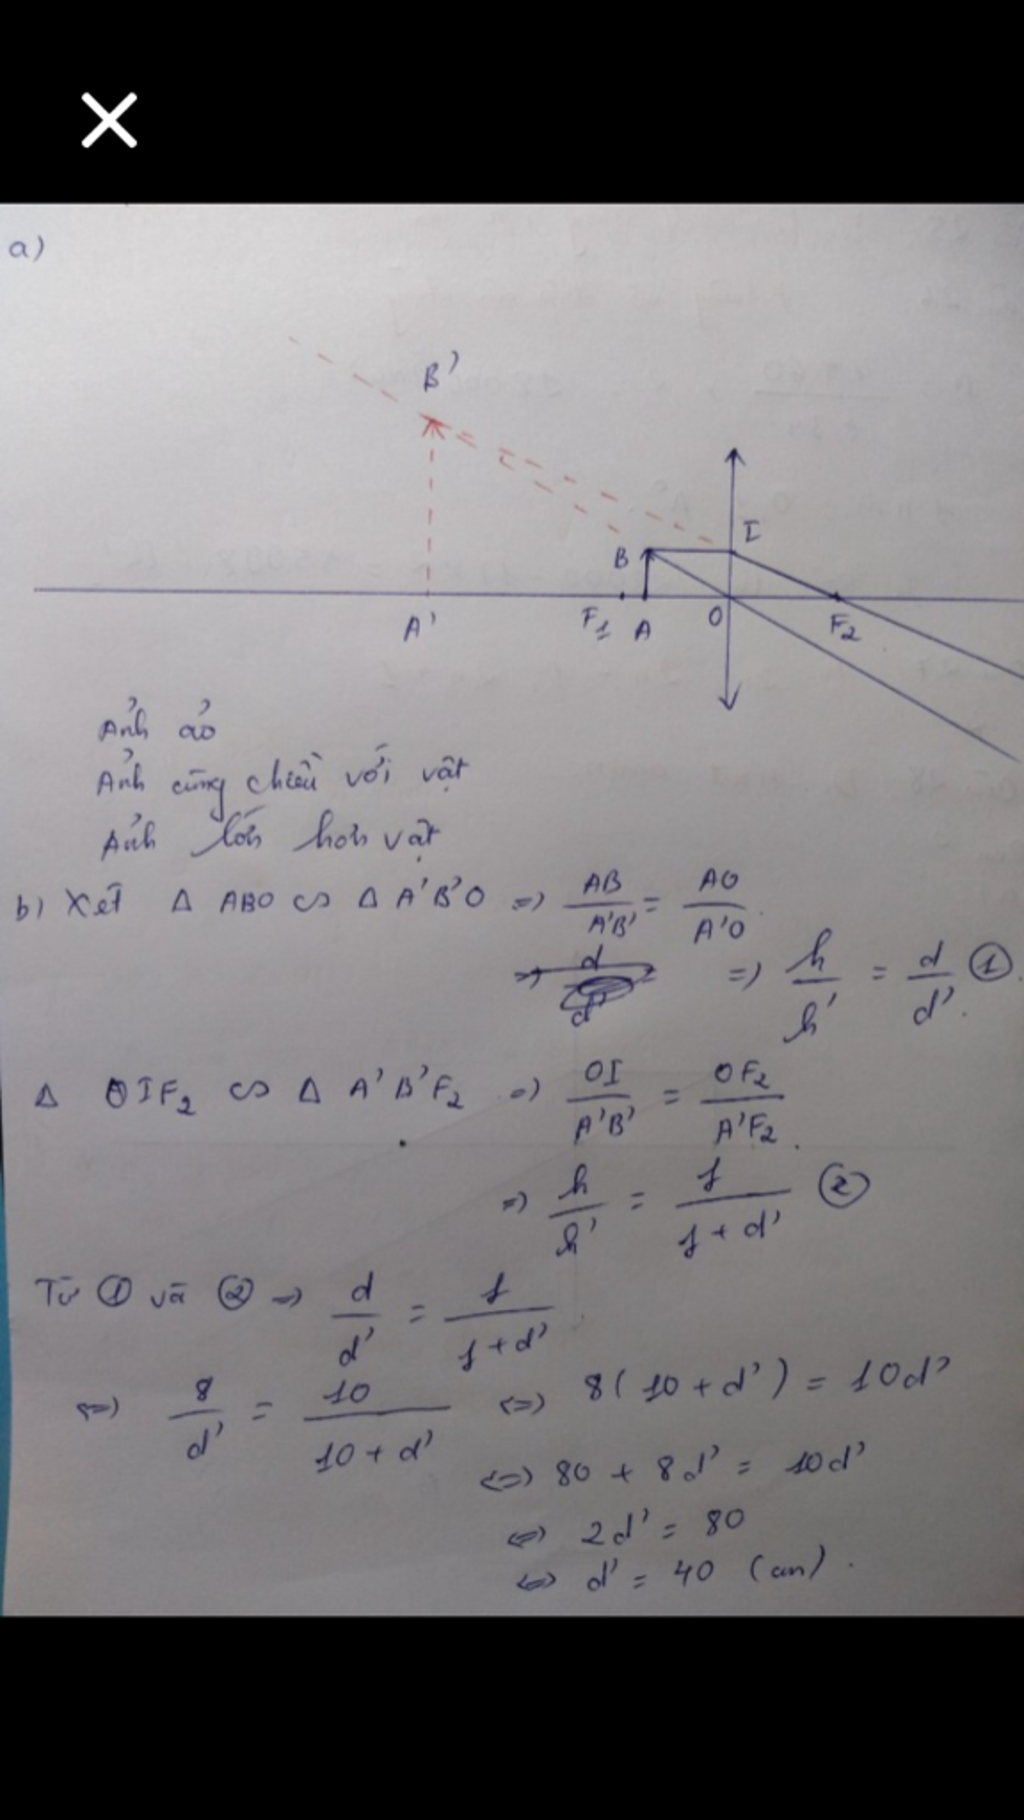 a)
B'
I
B
A'
F1
A
O
F2
Ảnh ảo
Ảnh cùng chiều với vật
Ảnh lớn hơn vật
b) Xét Δ ABO ∽ Δ A'B'O => AB/A'B' = AO/A'O.
=> h/h' = d/d' ①.
Δ OIF2 ∽ Δ A'B'F2 => OI/A'B' = OF2/A'F2.
=> h/h' = f/f + d' ②
Từ ① và ② => d/d' = f/f + d'
<=> 8/d' = 10/10 + d' <=> 8(10 + d') = 10d'
<=> 80 + 8d' = 10d'
<=> 2d' = 80
<=> d' = 40 (cm).